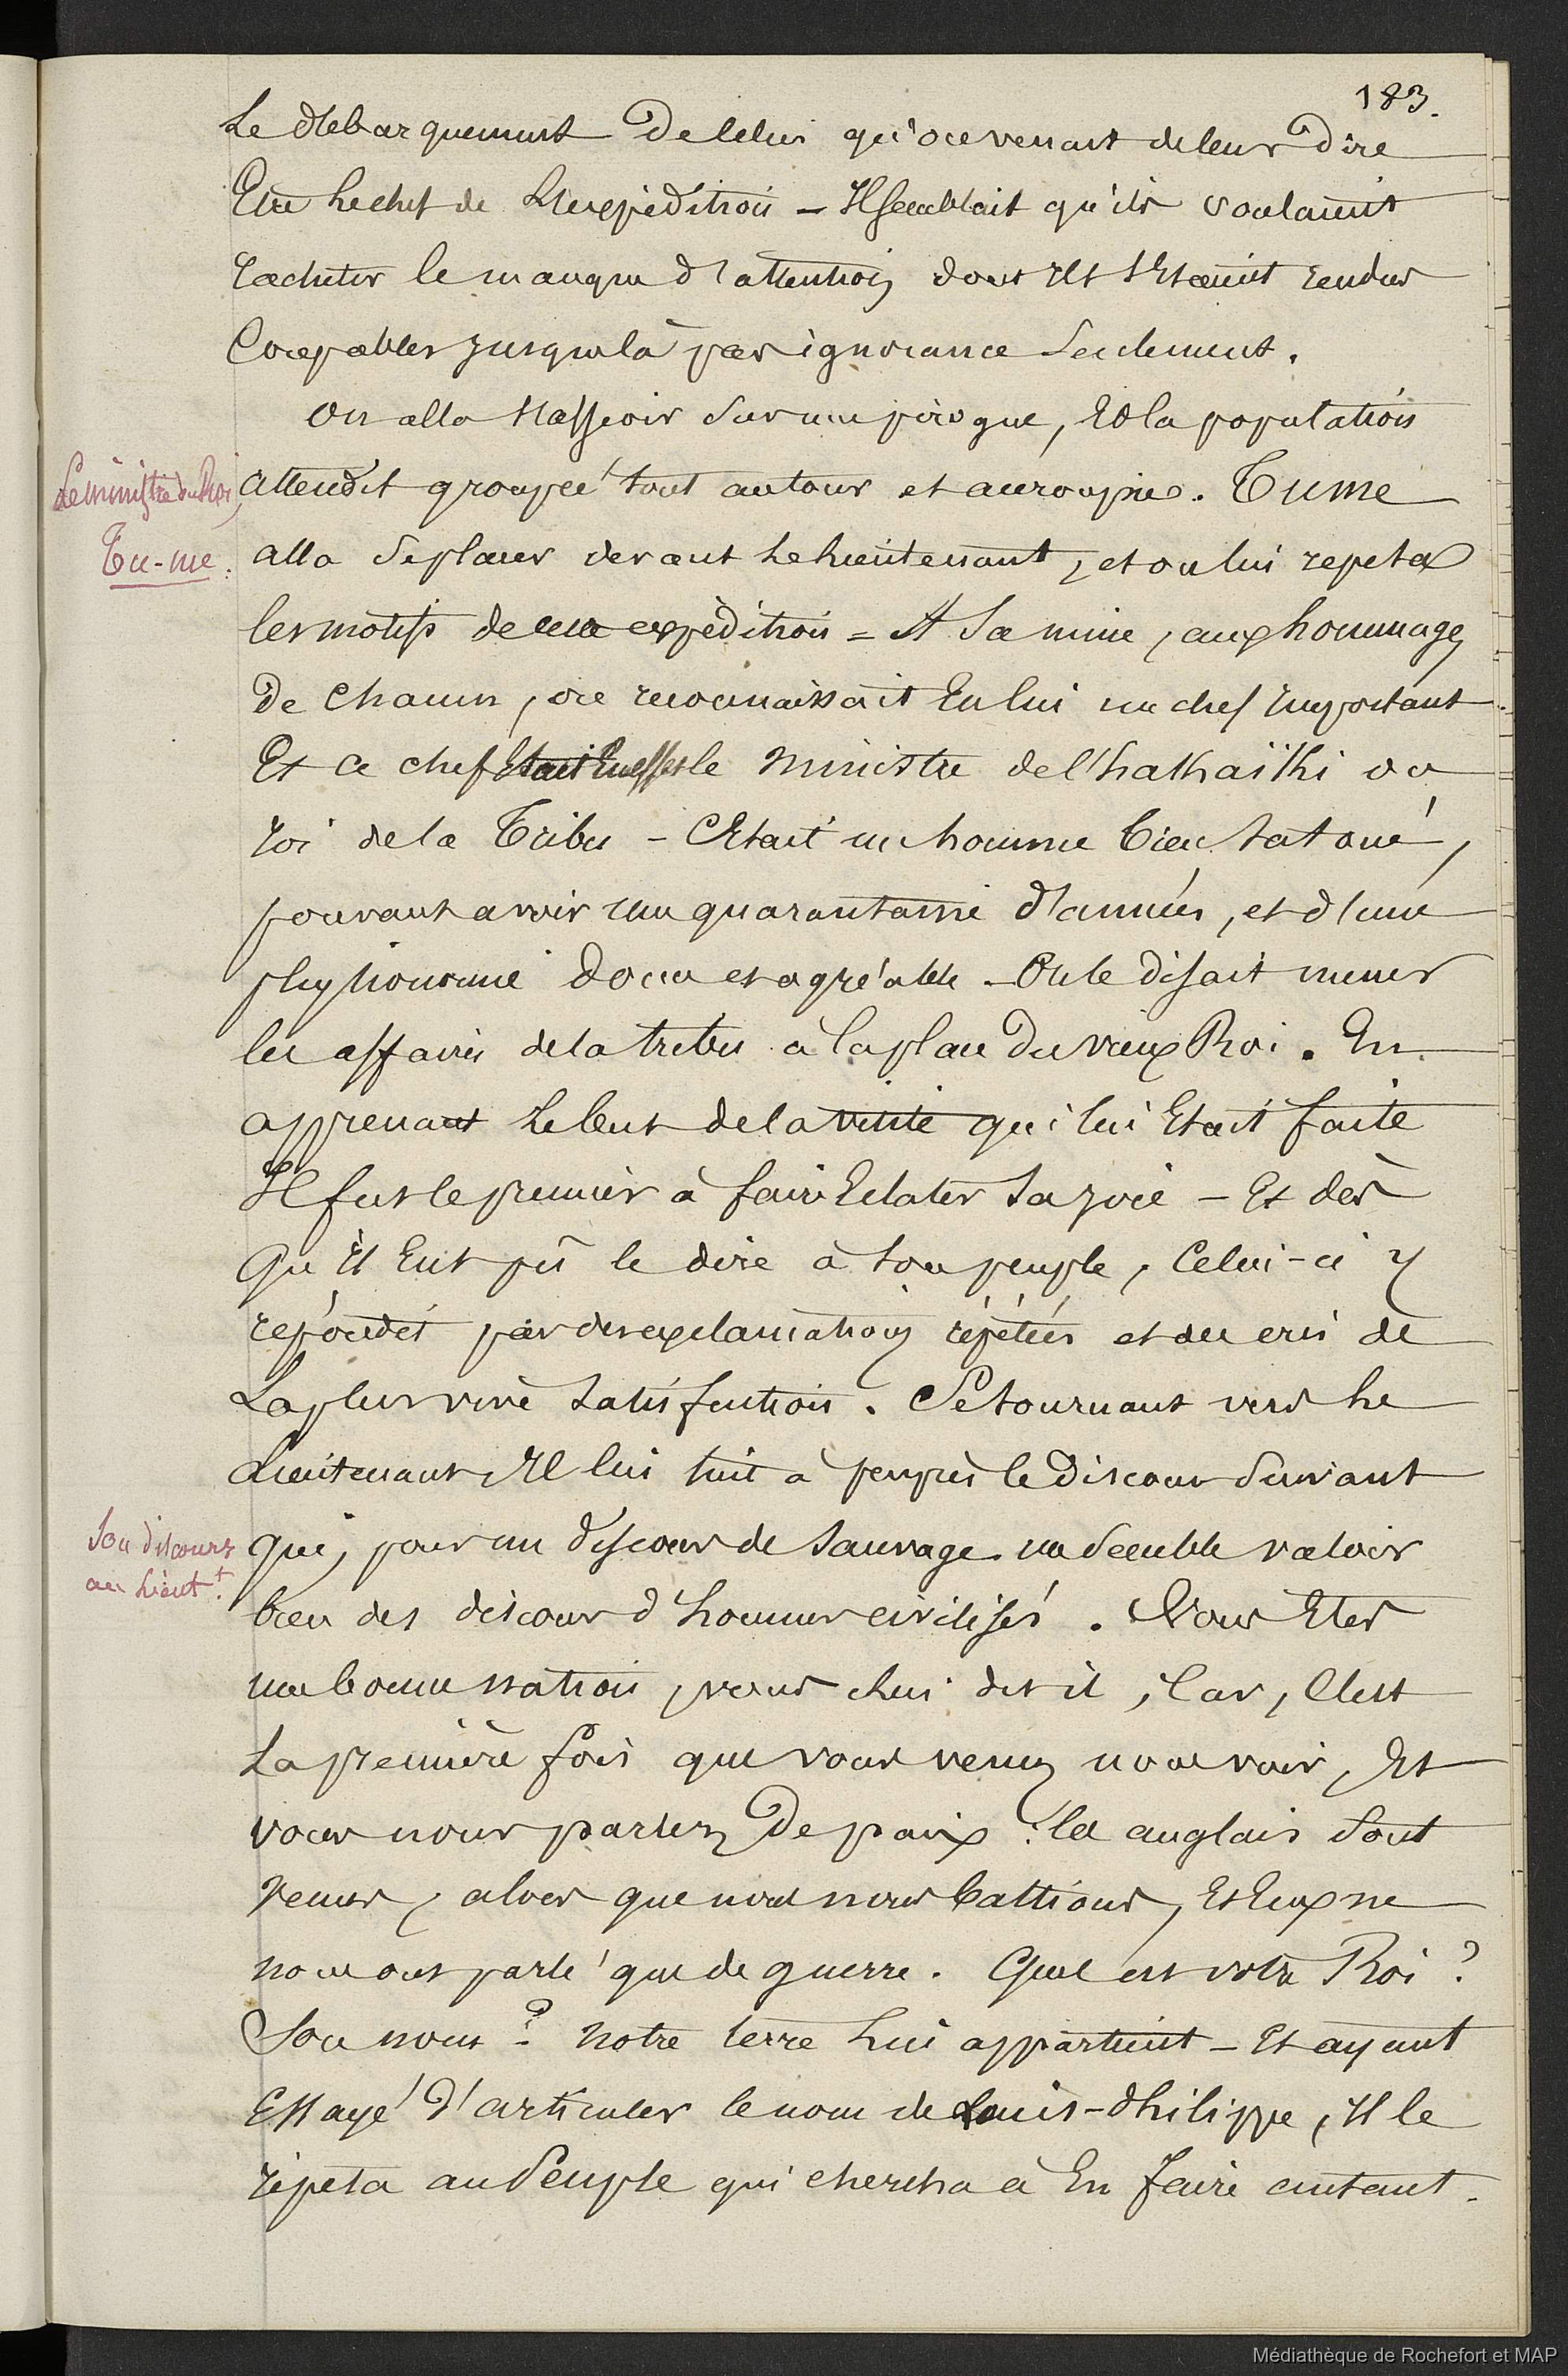 183.
Le débarquement de celui qu'on venait de leur dire
Etre le chef de L'expédition – Il semblait qu'ils voulaient
racheter le manque d'attention dont ils s'Etaient rendus
Coupables jusque là par ignorance Seulement.
On alla s'asseoir sur une pirogue, Et la population
Le ministre du Roi,
attendit groupée tout autour et accroupie. Tume
Tu-me.
alla se placer devant le Lieutenant, et on lui repeta
les motifs de cette expédition = A Sa mine, aux hommages
de chacun, on reconnaissait En lui un chef important
Et ce chef Etait En effet le ministre de l'hakaïki ou
roi de la Tribu – C'Etait un homme bien tatoué,
pouvant avoir une quarantaine d'années, et d'une
physionomie douce et agréable – On le disait mener
les affaires de la tribu à la place du vieux Roi. En
apprenant le but de la visite qui lui Etait faite
Il fut le premier à faire Eclater sa joie – Et dès
Qu'il Eut pû le dire à son peuple, Celui-ci y
repondit par des exclamations répétées et des cris de
La plus vive satisfaction. Se tournant vers le
Lieutenant, Il lui tint à peu près le Discours Suivant
Son discours
au Lieut.t
qui, pour un discours de Sauvage me Semble valoir
bien des discours d'hommes civilisés. Vous Etes
une bonne nation, vous chui dit il, Car, C'est
La première fois que vous venez nous voir, Et
vous nous parlez de paix. les anglais Sont
venus, alors que nous nous battions, Et Eux ne
nous ont parlé que de guerre. Quel est votre Roi ?
Son nom ? notre terre Lui appartient – Et ayant
Essayé d'articuler le nom de Louis-Philippe, Il le
répeta au Peuple qui chercha à En faire autant.
Médiathèque de Rochefort et MAP